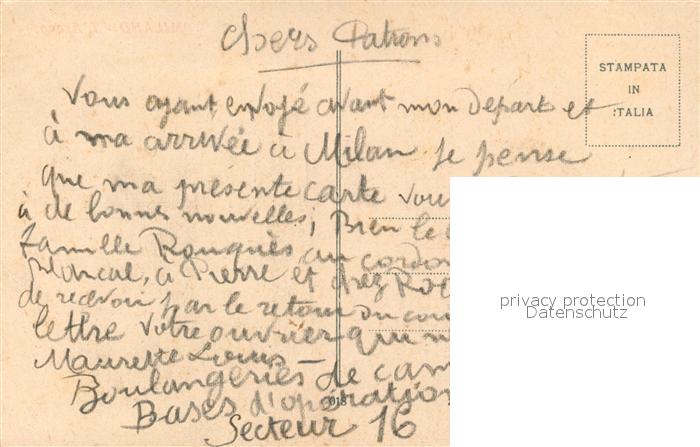 Chers Patrons
STAMPATA
IN
ITALIA
Vous ayant envoyé avant mon départ et
à ma arrivée à Milan je pense
que ma présente carte vou
à de bonnes nouvelles, Bien le
famille Rouquès au cordon
à Pierre et chez
de recevoir par le retour du cou
lettre votre ouvrier qui
Maurette Louis —
Boulangeries de cam
Bases d'opération
Secteur 16
privacy protection
Datenschutz